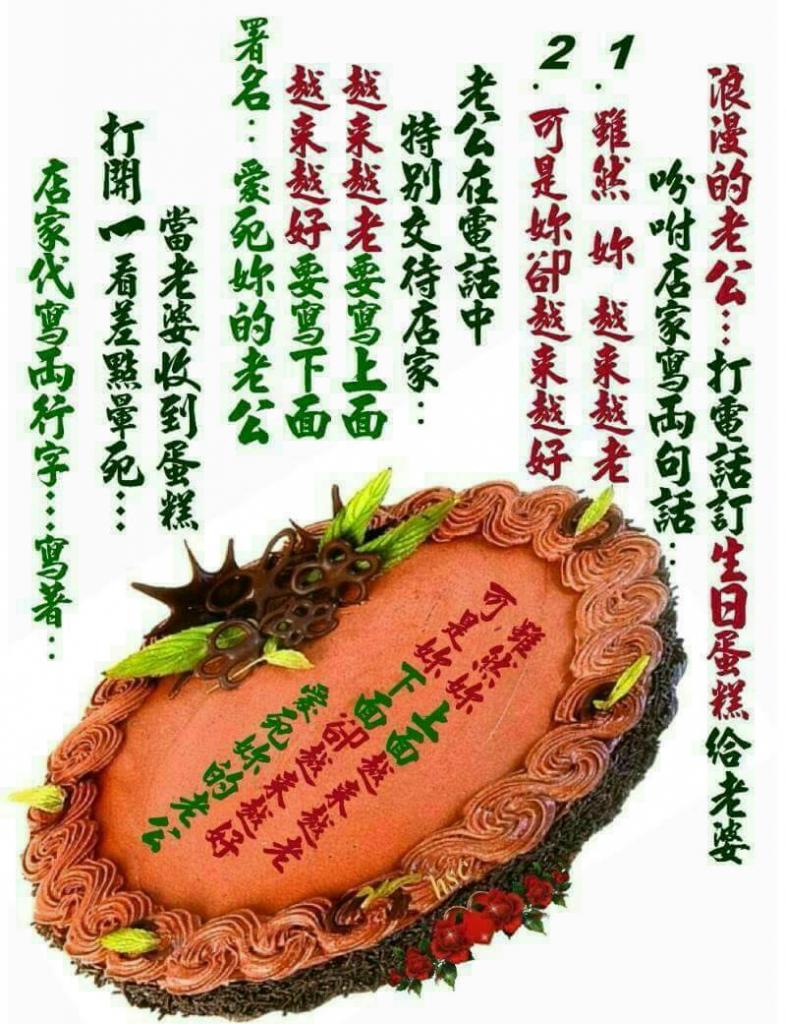 浪漫的老公…打電話訂生日蛋糕給老婆
吩咐店家寫両句話…
1.雖然 妳 越来越老
2.可是妳卻越来越好
老公在電話中
特別交待店家…
越来越老要寫上面
越来越好要寫下面
署名：愛死妳的老公
當老婆收到蛋糕
打開一看差點暈死…
店家代寫両行字…寫著…
雖然妳上面越来越老
可是妳下面卻越来越好
愛死妳的老公
hsc